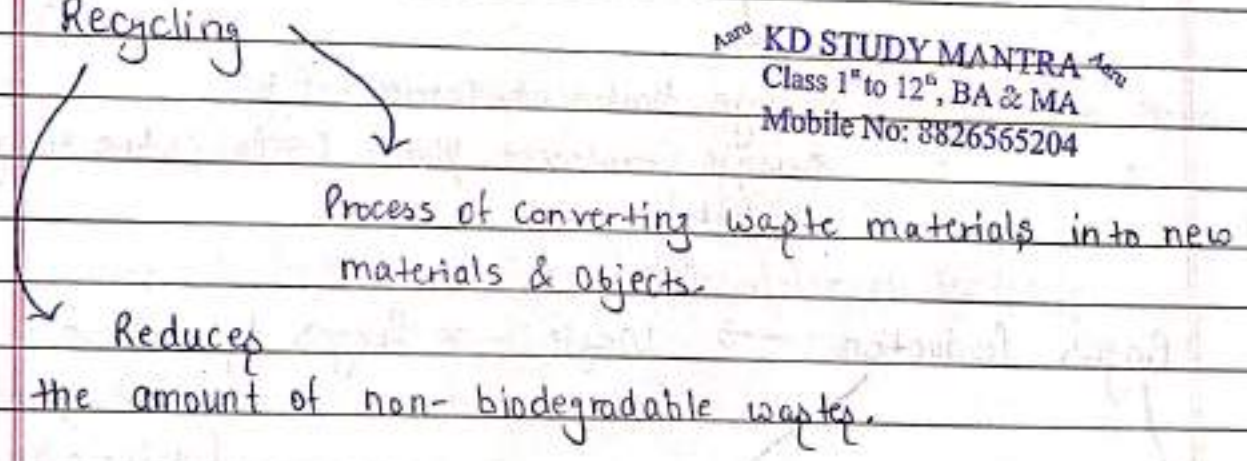 Recycling
Aaru KD STUDY MANTRA Aaru
Class 1st to 12th, BA & MA
Mobile No: 8826565204
Process of converting waste materials into new
materials & Objects.
Reduces
the amount of non-biodegradable wastes.